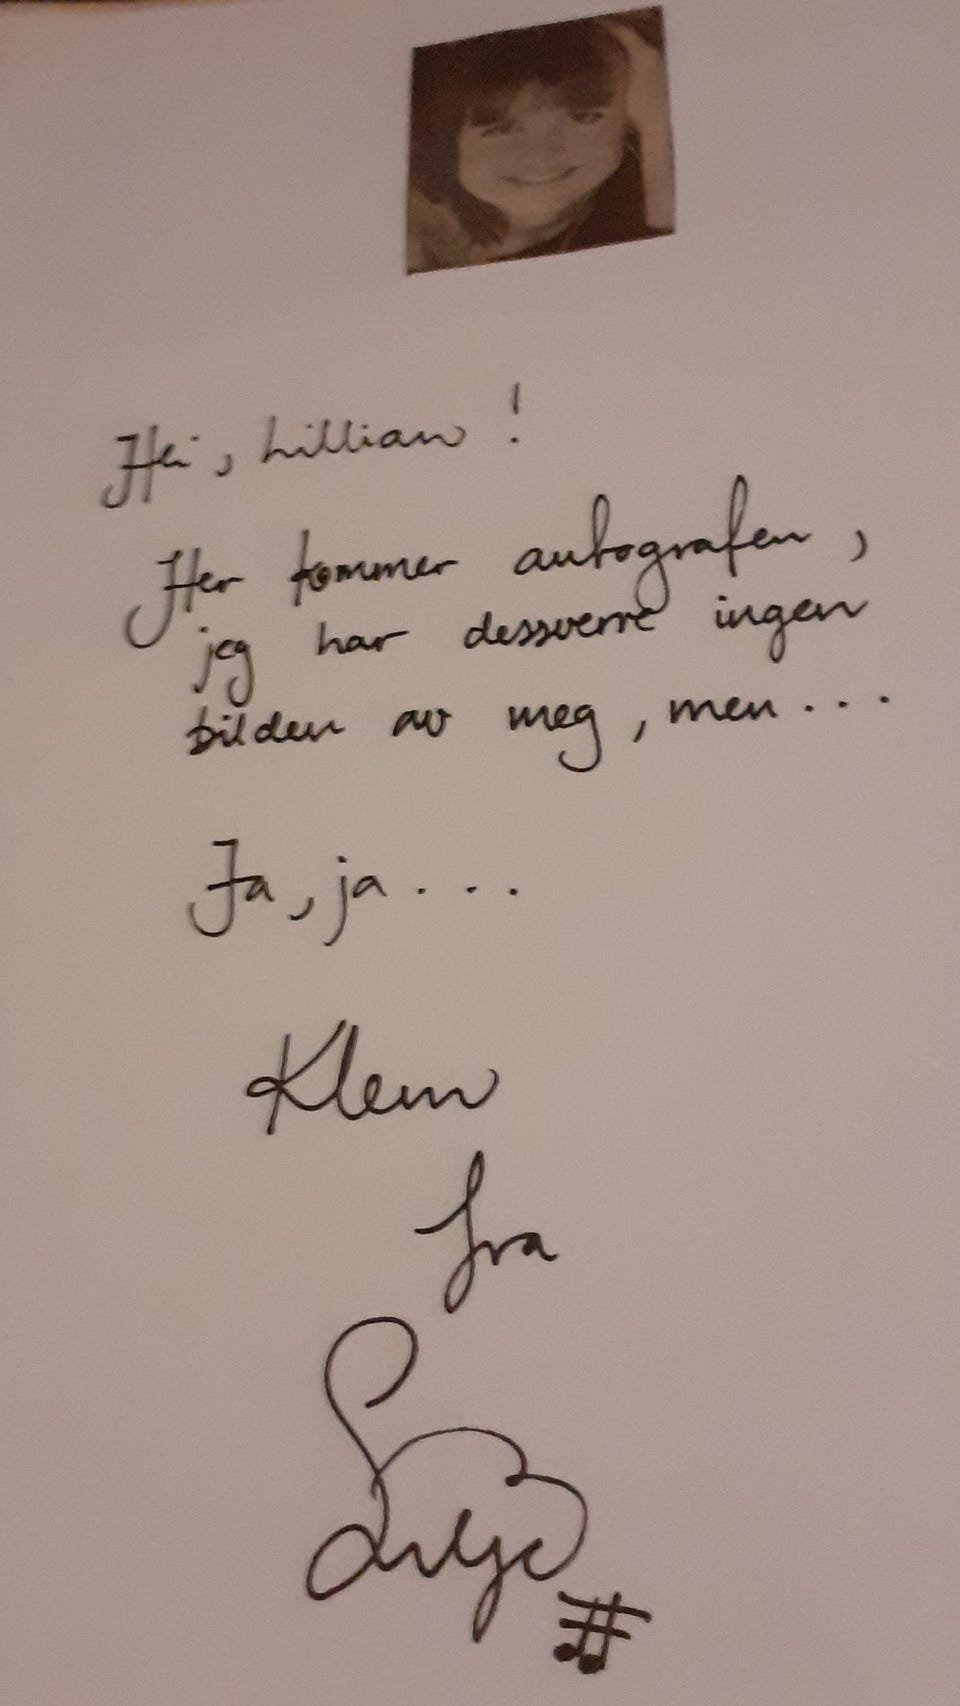 Hei, Lillian!
Her kommer autografen,
jeg har dessverre ingen
bilder av meg, men...
Ja, ja...
Klem
fra